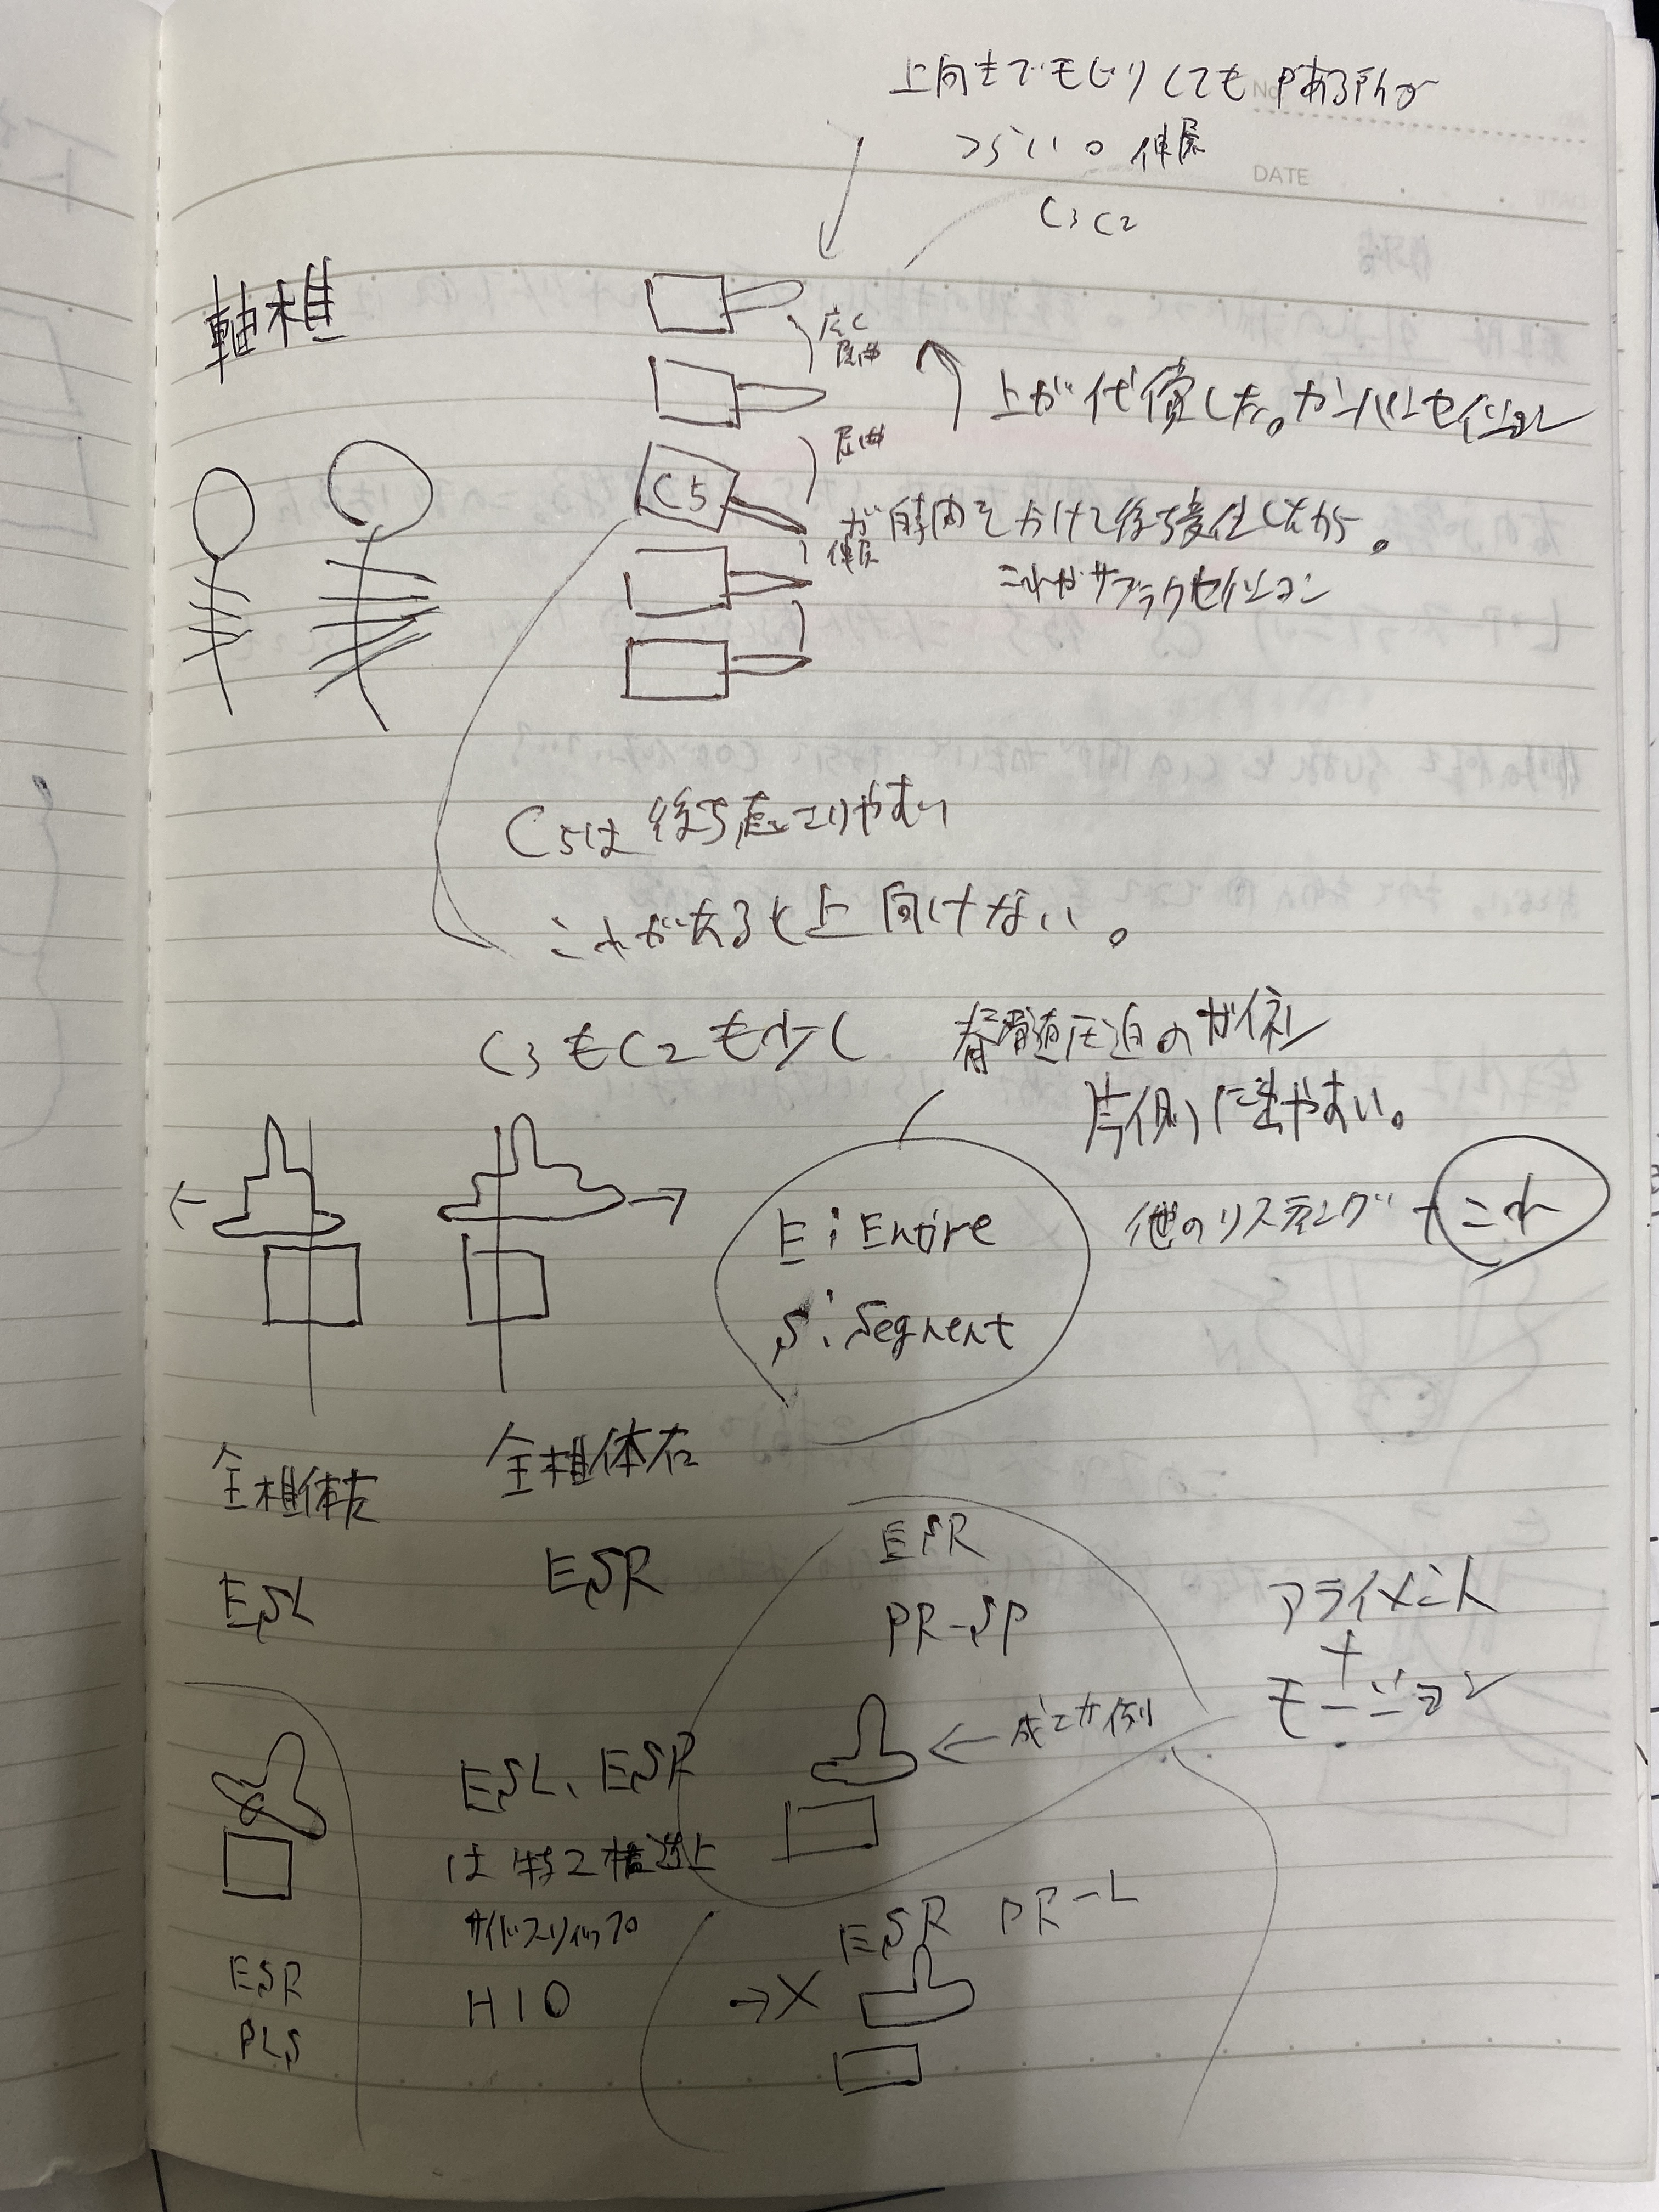 No.
DATE
上向きでモビリしても Pある所が
つらい。伸展
C3 C2
軸椎
広く
屈曲
上が代償した。カンパンセイション
屈曲
C5
が 時間をかけて後ろ変位したから。
伸展
これがサブラクセイション
C5は後ろ えりやすい
これがあると上向けない。
C3もC2も少し
脊髄圧迫の サイン
片側に出やすい。
E : Entire
S : Segment
他のリスティング + これ
全椎体左
全椎体右
ESL
ESR
ESR
PR-SP
アライメント
+
モーション
← 成功例
ESL、ESR
は特に構造上
サイドスリップ
H I O
ESR
PLS
ESR PR-L
→×